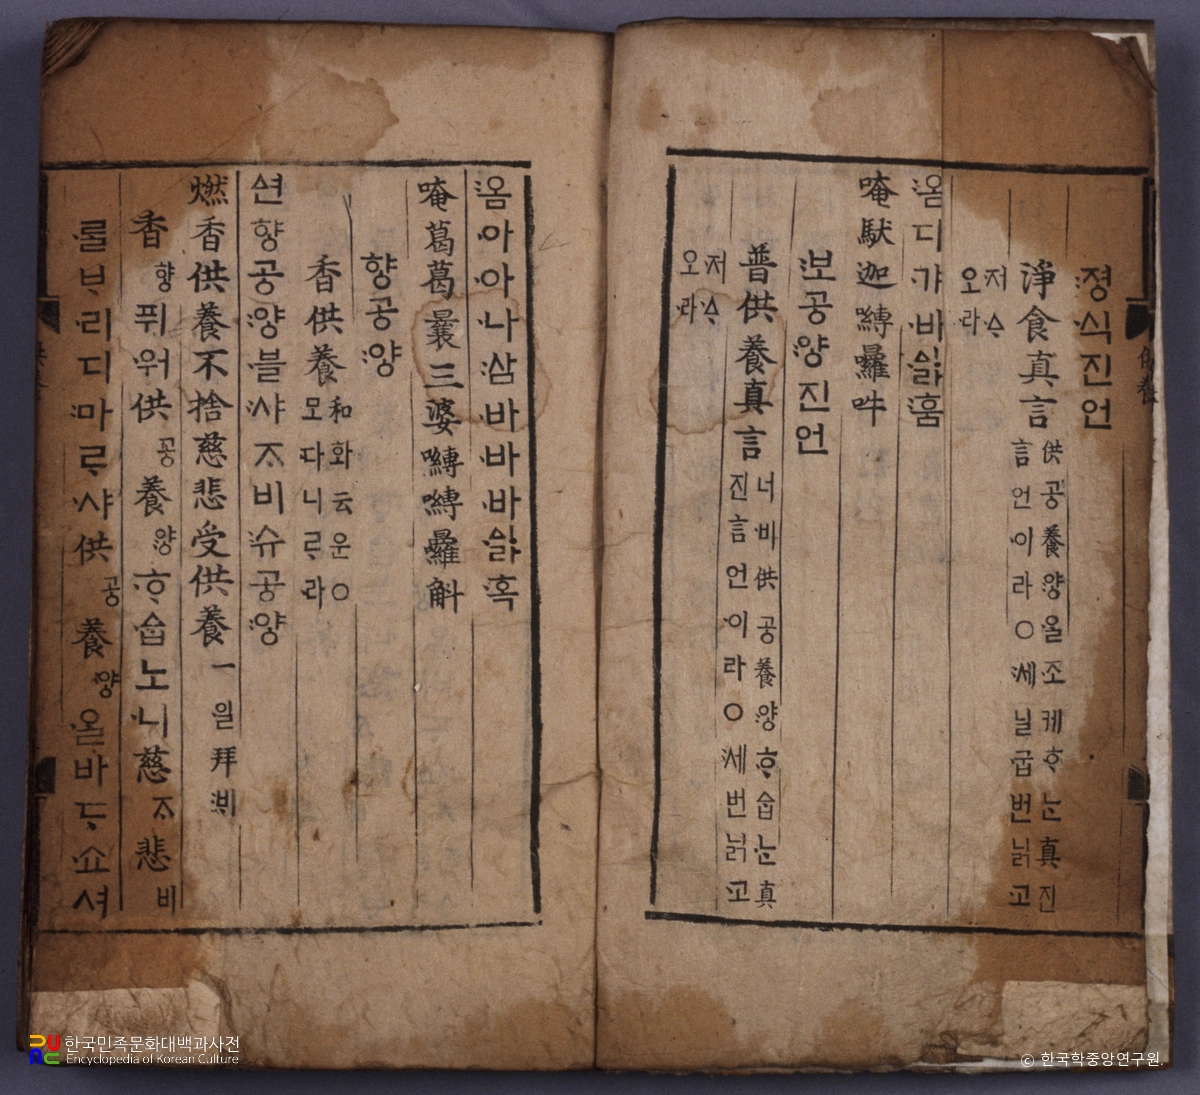 졍식진언
淨食真言 供공養양올조케ᄒᆞ눈真진言언이라○세닐굽번닑고
저ᄉᆞ오라
옴디갸바ᅀᅡᆰ훔
唵䭾迦嚩囉吽
보공양진언
普供養真言 너비供공養양ᄒᆞ숩논真진言언이라○세번닑고
저ᄉᆞ오라
옴아아나삼바바바ᅀᅡᆰ혹
唵葛葛曩三婆嚩嚩囉斛
향공양
香供養 和화云운○모다니ᄅᆞ라
션향공양블샤ᄌᆞ비슈공양
燃香供養不捨慈悲受供養 一일拜배
香향퓌워供공養양ᄒᆞ숩노니慈ᄌᆞ悲비
ᄅᆞᆯᄇᆞ리디마ᄅᆞ샤供공養양올바ᄃᆞ쇼셔
한국민족문화대백과사전
Encyclopedia of Korean Culture
ⓒ 한국학중앙연구원.